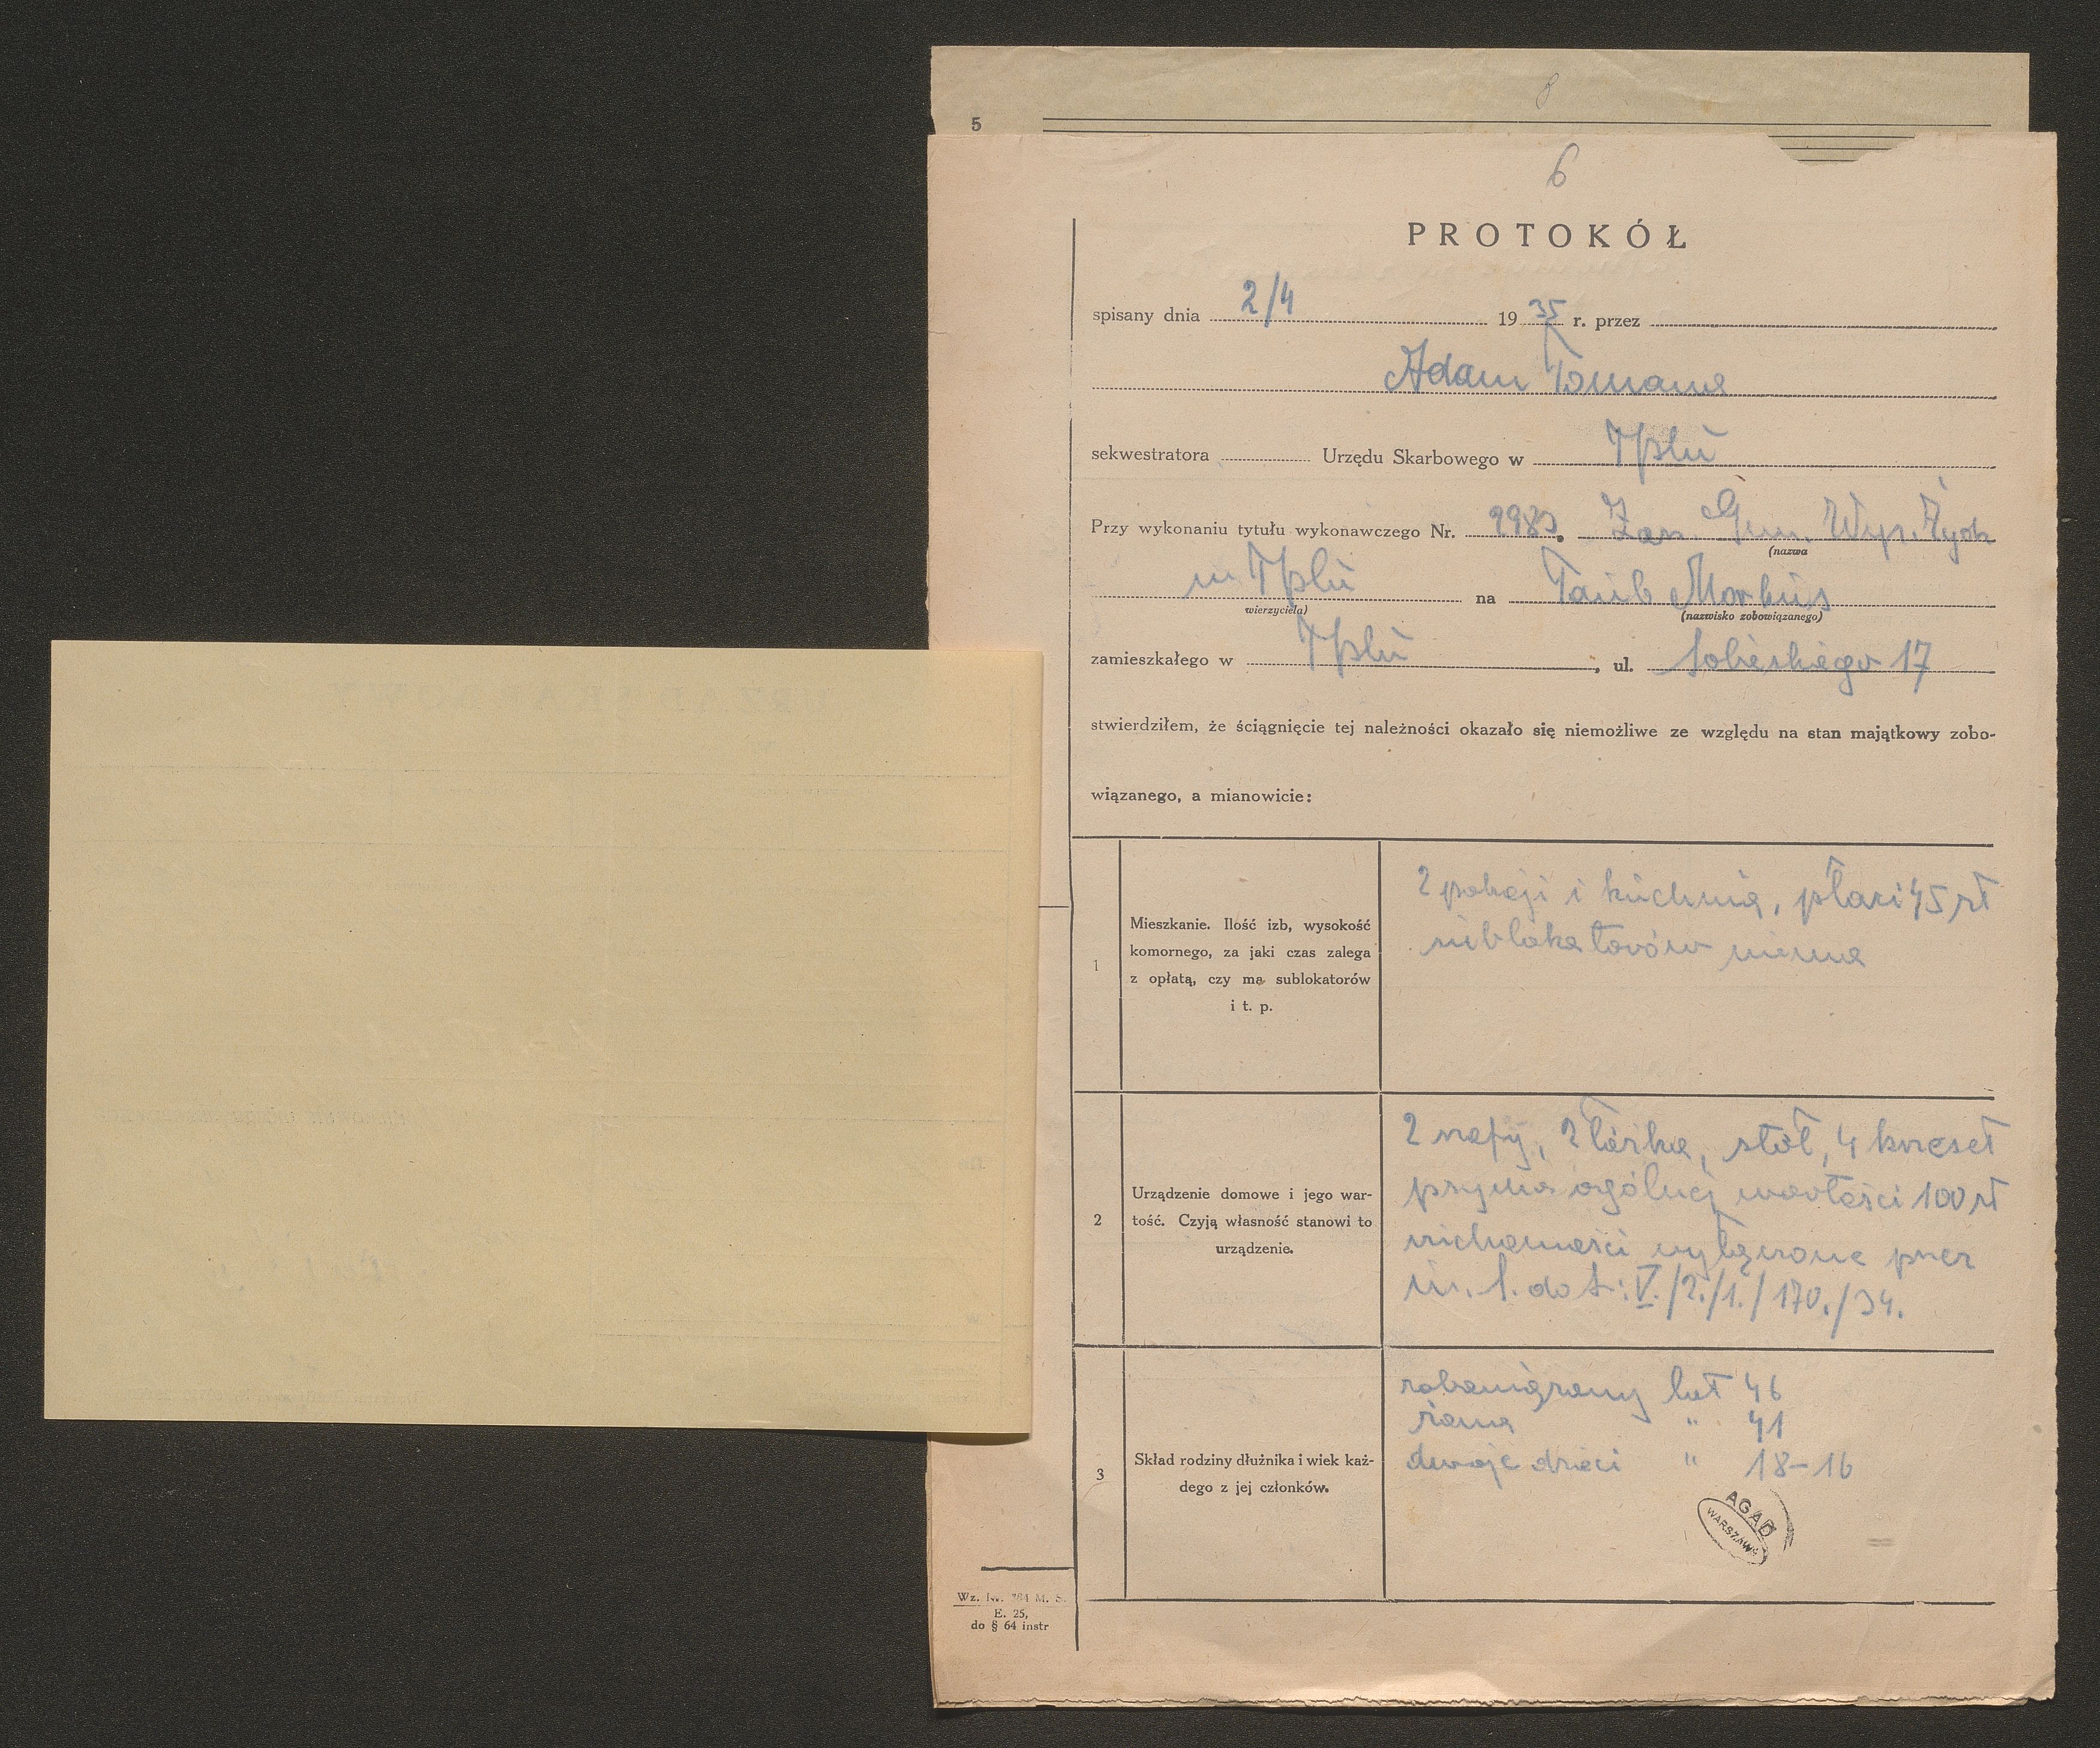 8
5
6
PROTOKÓŁ
spisany dnia 2/4 1935 r. przez
Adam Tomana
sekwestratora Urzędu Skarbowego w Tplu
Przy wykonaniu tytułu wykonawczego Nr. Zar. Gm. Wyz. Żyd.
(nazwa
w Tplu na Taub Markus
wierzyciela) (nazwisko zobowiązanego)
zamieszkałego w Tplu, ul. Sobieskiego 17
stwierdziłem, że ściągnięcie tej należności okazało się niemożliwe ze względu na stan majątkowy zobo-
wiązanego, a mianowicie:
1
Mieszkanie. Ilość izb, wysokość
komornego, za jaki czas zalega
z opłatą, czy ma sublokatorów
i t. p.
2 pokoji i kuchnia, płaci 45 zł
sublokatorów niema
2
Urządzenie domowe i jego war-
tość. Czyją własność stanowi to
urządzenie.
2 szafy, 2 łóżka, stół, 4 krzeseł
ogólnej wartości 100 zł
ruchomości wyłączone przez
do L: V./2./1./170./34.
3
Skład rodziny dłużnika i wiek każ-
dego z jej członków.
zobowiązany lat 46
żona " 41
dwoje dzieci " 18-16
AGAD
WARSZAWA
Wz. Nr. 764 M. S.
E. 25,
do § 64 instr